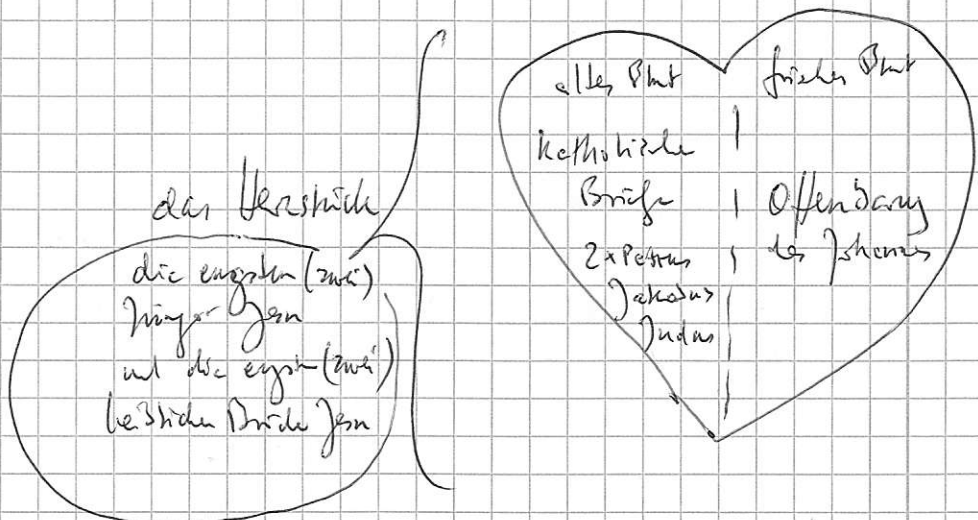 das Herzstück
die engsten (zwei)
Jünger Jesu
und die engsten (zwei)
leiblichen Brüder Jesu
altes Blut
frisches Blut
Katholische
Briefe
2x Petrus
Jakobus
Judas
Offenbarung
des Johannes